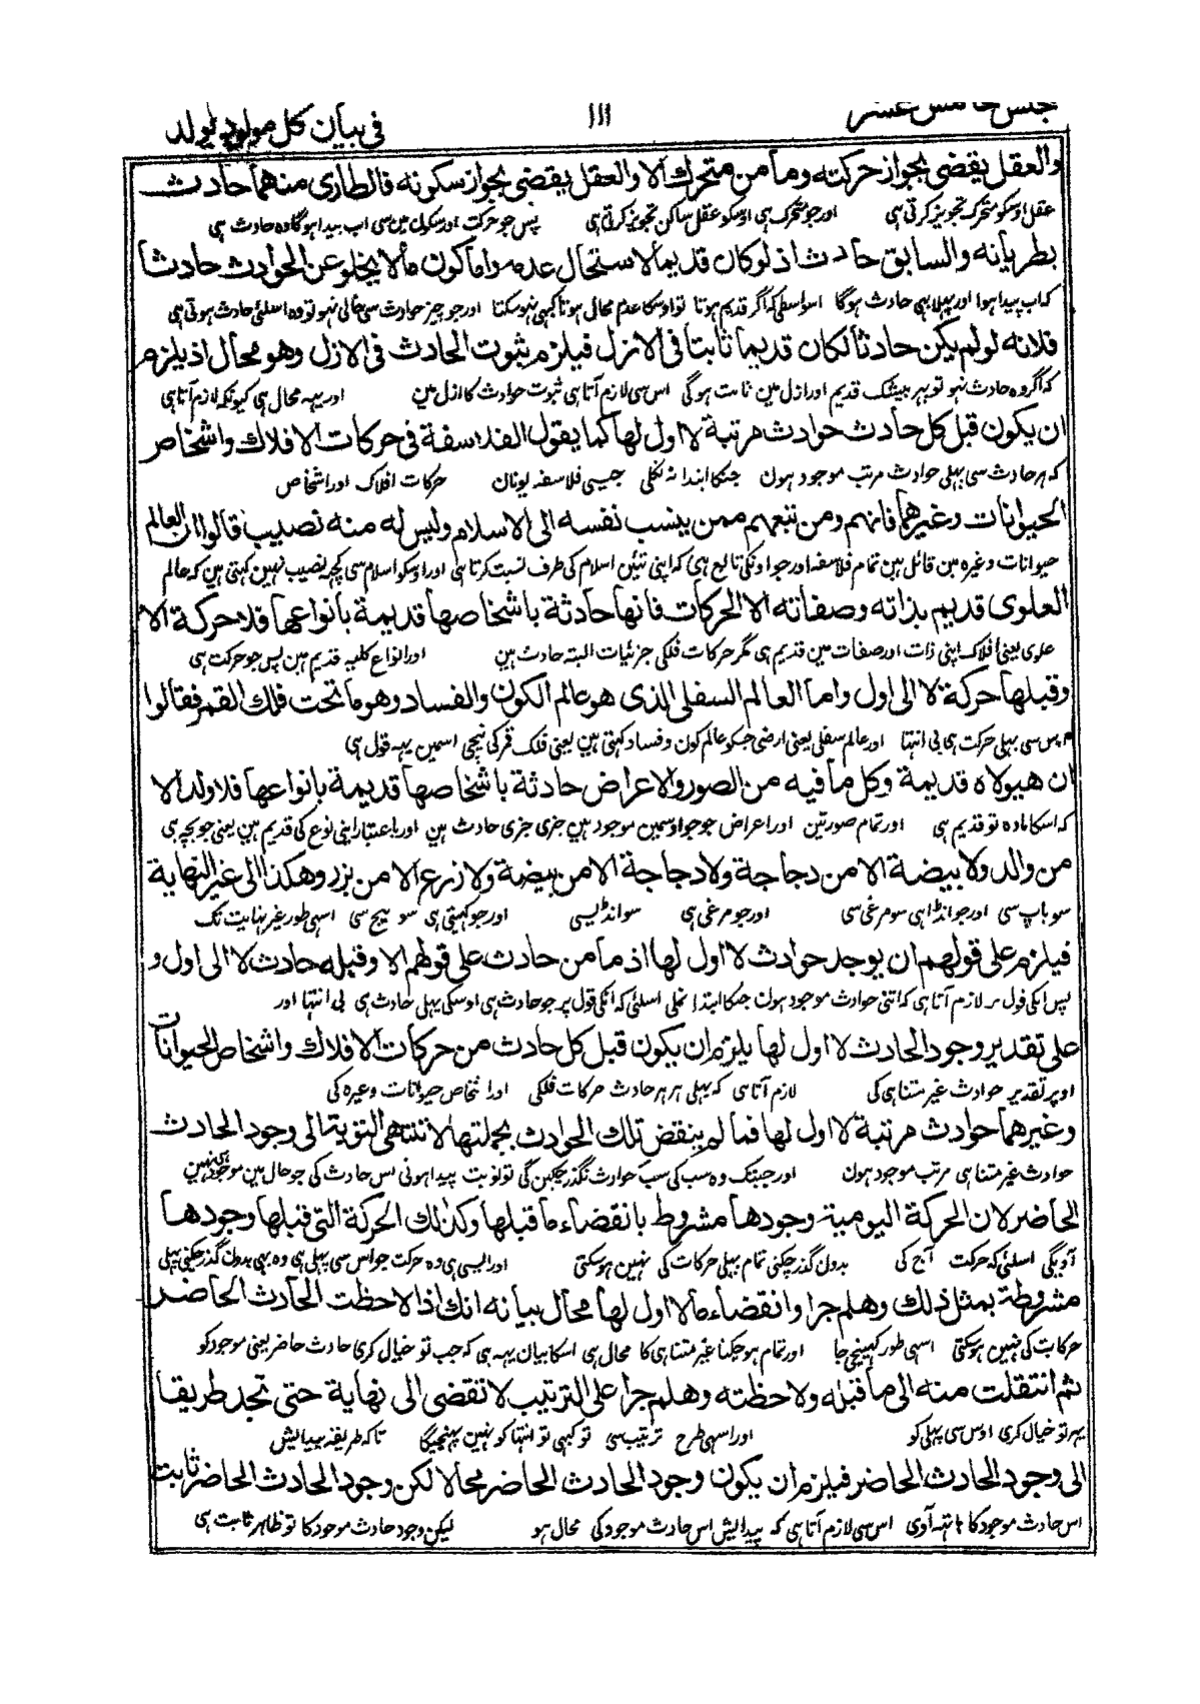 مجلس خامس عشر
١١١
فی بیان کل مولود یولد
والعقل یقضی بجواز حرکته وما من متحرك الا والعقل یقضی بجواز سکونه فالطاری منهما حادث
عقل اوسکو متحرک تجویز کرتی ہی اور جو متحرک ہی اوسکو عقل ساکن تجویز کرتی ہی پس جو حرکت اور سکون مین سی اب پیدا ہوگا وہ حادث ہی
بطریانه والسابق حادث اذ لو کان قدیما لاستحال عدمه واما کون ما لا یخلو عن الحوادث حادثا
کہ اب پیدا ہوا اور پہلا بہی حادث ہوگا اسواسطی کہ اگر قدیم ہوتا تو اوسکا عدم محال ہوتا کبہی نہو سکتا اور جو چیز حوادث سی خالی نہو تو وہ اسلئی حادث ہوتی ہی
فلانه لو لم یکن حادثا لکان قدیما ثابتا فی الازل فیلزم ثبوت الحادث فی الازل وهو محال اذ یلزم
کہ اگر وہ حادث نہو تو پہر بیشک قدیم اور ازل مین ثابت ہوگی اس سی لازم آتا ہی ثبوت حوادث کا ازل مین اور یہہ محال ہی کیونکہ لازم آتا ہی
ان یکون قبل کل حادث حوادث مرتبة لا اول لها کما یقول الفلاسفة فی حرکات الافلاك واشخاص
کہ ہر حادث سی پہلی حوادث مرتب موجود ہون جنکا ابتدا نہ نکلی جیسی فلاسفہ یونان حرکات افلاک اور اشخاص
الحیوانات وغیرهما فانهم ومن تبعهم ممن ینسب نفسه الی الاسلام ولیس له منه نصیب قالوا ان العالم
حیوانات وغیرہ مین قائل ہین تمام فلاسفہ اور جو اونکی تابع ہی کہ اپنی تئین اسلام کی طرف نسبت کرتا ہی اور اوسکو اسلام سی کچہہ نصیب نہین کہتی ہین کہ عالم
العلوی قدیم بذاته وصفاته الا الحرکات فانها حادثة باشخاصها قدیمة بانواعها فلا حرکة الا
علوی یعنی افلاک اپنی ذات اور صفات مین قدیم ہی مگر حرکات فلکی جزئیات البتہ حادث ہین اور انواع کلیہ قدیم ہین پس جو حرکت ہی
وقبلها حرکة لا الی اول واما العالم السفلی الذی هو عالم الکون والفساد وهو ما تحت فلك القمر فقالوا
اس سی پہلی حرکت ہی بی انتہا اور عالم سفلی یعنی ارضی جسکو عالم کون و فساد کہتی ہین یعنی فلک قمر کی نیچی اسمین یہہ قول ہی
ان هیولاه قدیمة وکل ما فیه من الصور والاعراض حادثة باشخاصها قدیمة بانواعها فلا ولد الا
کہ اسکا مادہ تو قدیم ہی اور تمام صورتین اور اعراض جو جو اوسمین موجود ہین جزی جزی حادث ہین اور باعتبار اپنی نوع کی قدیم ہین یعنی جو بچہ ہی
من والد ولا بیضة الا من دجاجة ولا دجاجة الا من بیضة ولا زرع الا من بزر وهکذا الی غیر النهایة
سو باپ سی اور جو انڈا ہی سو مرغی سی اور جو مرغی ہی سو انڈیسی اور جو کہیتی ہی سو بیج سی اسی طور غیر نہایت تک
فیلزم علی قولهم ان یوجد حوادث لا اول لها اذ ما من حادث علی قولهم الا وقبله حادث لا الی اول و
پس انکی قول پر لازم آتا ہی کہ اتنی حوادث موجود ہون جنکا ابتدا نخلی اسلئی کہ انکی قول پر جو حادث ہی اوسکی پہلی حادث ہی بی انتہا اور
علی تقدیر وجود الحادث لا اول لها یلزم ان یکون قبل کل حادث من حرکات الافلاك واشخاص الحیوانات
اوپر تقدیر حوادث غیر متناہی کی لازم آتا ہی کہ پہلی ہر ہر حادث حرکات فلکی اور اشخاص حیوانات وغیرہ کی
وغیرهما حوادث مرتبة لا اول لها فما لم ینقض تلك الحوادث بجملتها لا تنتهی النوبة الی وجود الحادث
حوادث غیر متناہی مرتب موجود ہون اور جبتک وہ سب کی سب حوادث نگذر چکین گی تو نوبت پیدا ہونی اس حادث کی جو حال مین موجود ہی نہین
الحاضر لان الحرکة الیومیة وجودها مشروط بانقضاء ما قبلها وکذلك الحرکة التی قبلها وجودها
آویگی اسلئی کہ حرکت آج کی بدون گذر چکنی تمام پہلی حرکات کی نہین ہوسکتی اور ایسی ہی وہ حرکت جو اس سی پہلی ہی وہ بہی بدون گذر چکنی پہلی
مشروطة بمثل ذلك وهلم جرا وانقضاء ما لا اول لها محال بیانه انك اذا لاحظت الحادث الحاضر
حرکات کی نہین ہوسکتی اسی طور کہینچی جا اور تمام ہو چکنا غیر متناہی کا محال ہی اسکا بیان یہہ ہی کہ جب تو خیال کری حادث حاضر یعنی موجود کو
ثم انتقلت منه الی ما قبله ولاحظته وهلم جرا علی الترتیب لا تقضی الی نهایة حتی تجد طریقا
پہر تو خیال کری اوس سی پہلی کو اور اسی طرح ترتیب سی تو کبہی تو انتہا کو نہین پہنچیگا تاکہ طریقہ پیدایش
الی وجود الحادث الحاضر فیلزم ان یکون وجود الحادث الحاضر محالا لکن وجود الحادث الحاضر ثابت
اس حادث موجود کا ہاتہہ آوی اس سی لازم آتا ہی کہ پیدایش اس حادث موجود کی محال ہو لیکن وجود حادث موجود کا تو ظاہر ثابت ہی